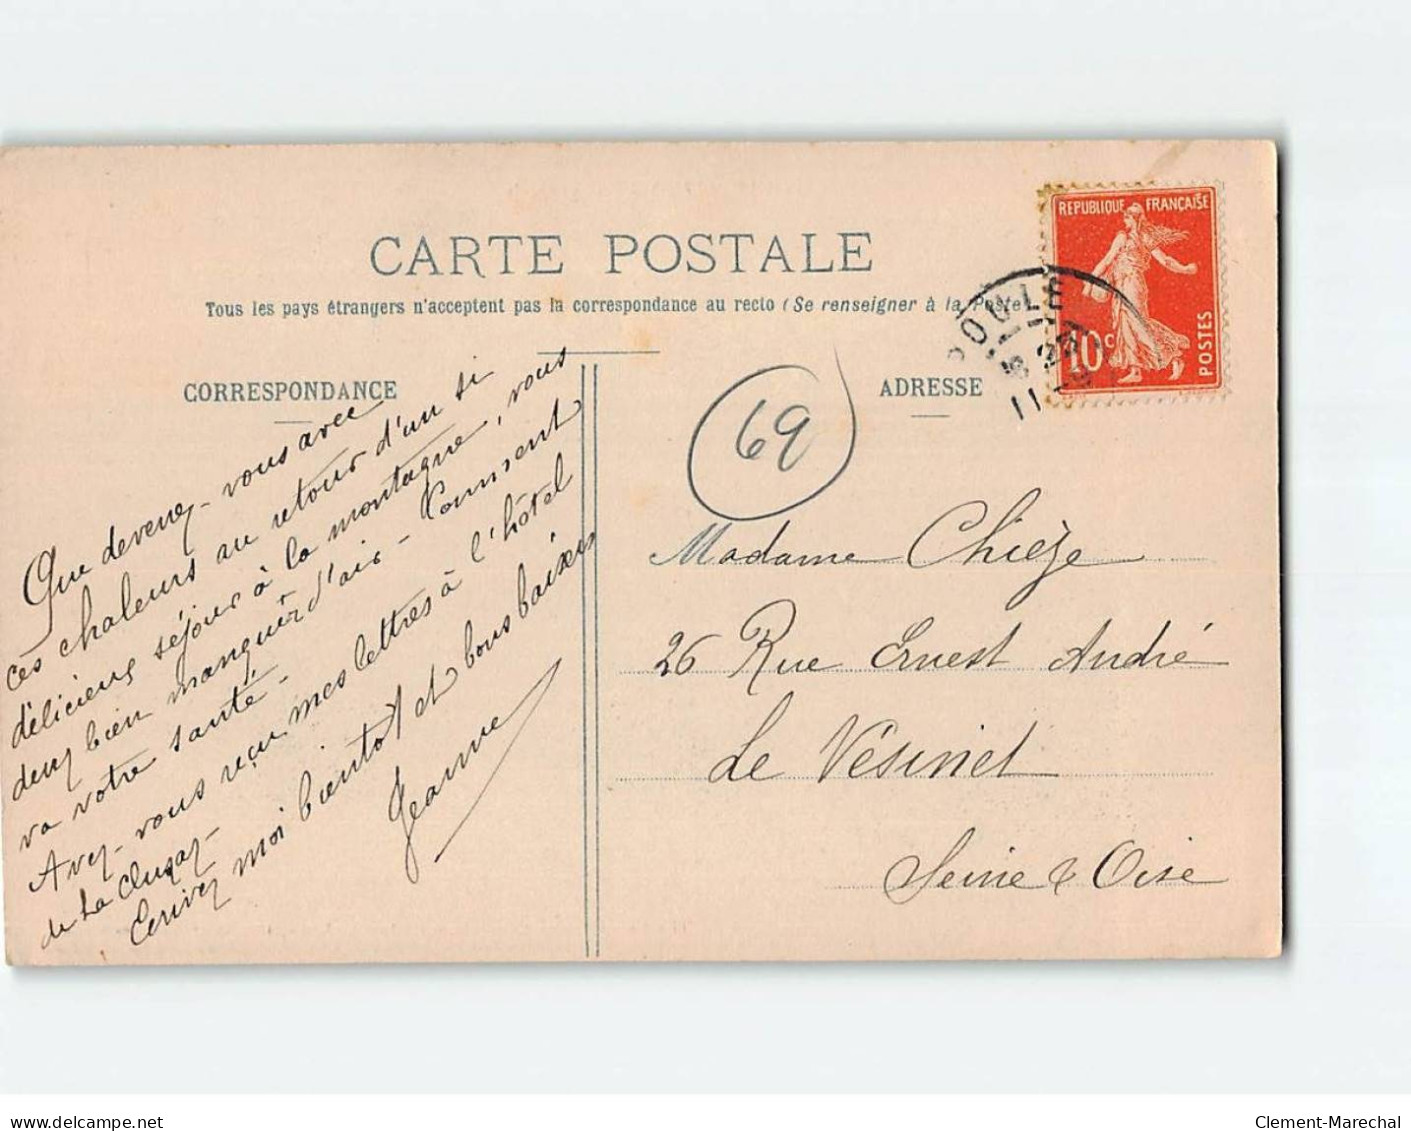 CARTE POSTALE
Tous les pays étrangers n'acceptent pas la correspondance au recto (Se renseigner à la Poste)
CORRESPONDANCE
ADRESSE
REPUBLIQUE FRANÇAISE
10c
POSTES
POULE
69
Que devenez-vous avec
ces chaleurs au retour d'un si
délicieux séjour à la montagne, vous
devez bien manquer d'air - Comment
va votre santé -
Avez-vous reçu mes lettres à l'hôtel
de La Clusaz -
Ecrivez moi bientôt et bons baisers
Jeanne
Madame Chièze
26 Rue Ernest André
Le Vésinet
Seine & Oise
delcampe.net
Clement-Marechal